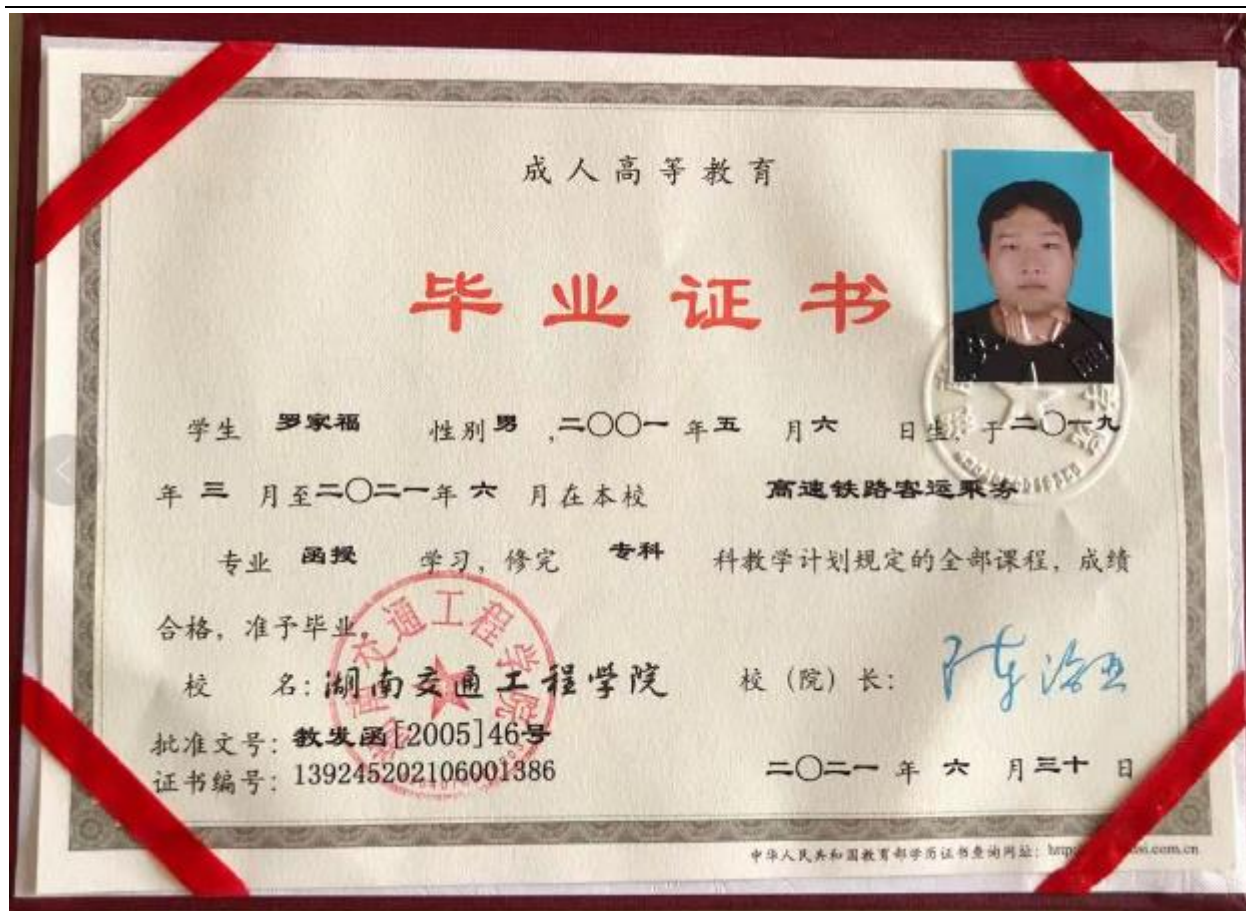 成人高等教育
毕业证书
学生 罗家福 性别 男 ,二〇〇一 年 五 月 六 日生, 于 二〇一九
年 三 月至 二〇二一 年 六 月在本校 高速铁路客运乘务
专业 函授 学习, 修完 专科 科教学计划规定的全部课程, 成绩
合格, 准予毕业。
校 名: 湖南交通工程学院 校 (院) 长:
批准文号: 教发函[2005]46号
证书编号: 139245202106001386 二〇二一 年 六 月 三十 日
中华人民共和国教育部学历证书查询网址: http
si.com.cn
南交通工程学院